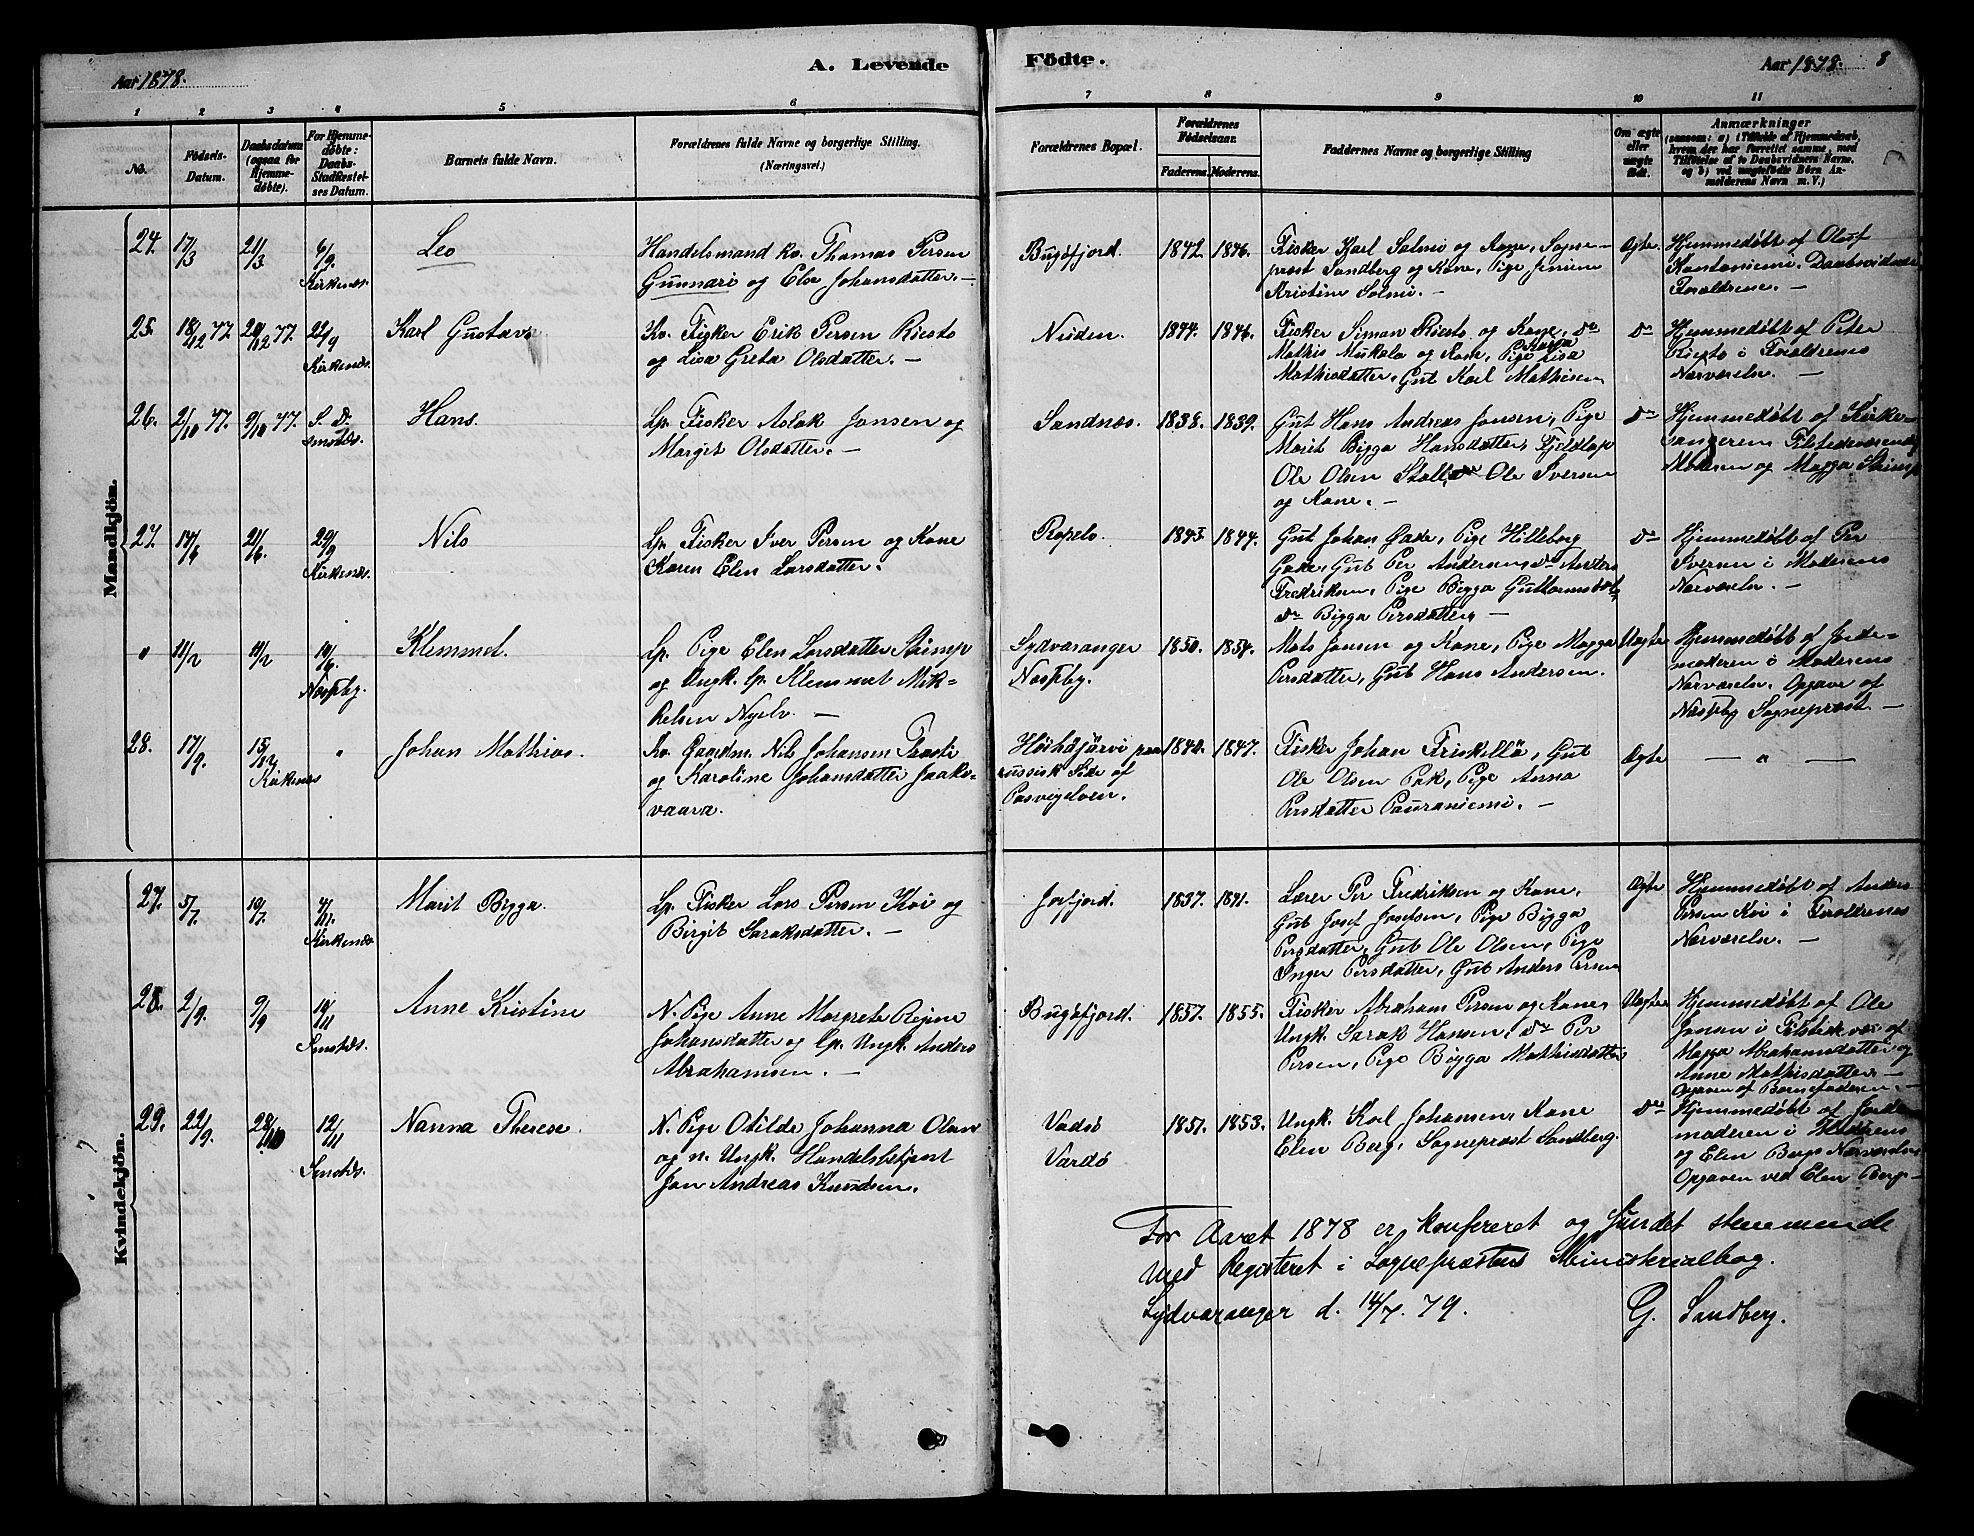 Aar 1878.
A. Levende
Födte.
Aar 1878.
8
1 2 3 4 5 6
7 8 9 10 11
No.
Födsels-Datum.
Daabsdatum (ogsaa for Hjemmedöbte).
For Hjemmedöbte: Daabs-Stadfæstelses Datum.
Barnets fulde Navn.
Forældrenes fulde Navne og borgerlige Stilling.
(Næringsvei.)
Forældrenes Bopæl.
Forældrenes Födselsaar.
Faderens. Moderens.
Faddernes Navne og borgerlige Stilling
Om ægte eller uægte födt.
Anmærkninger
(saasom: a) i Tilfælde af Hjemmedaab, hvem der har forrettet samme, med Tilföielse af to Daabsvidners Navne, og b) ved uægtefödte Börn Anmelderens Navn m. V.)
Mandkjön.
24. 17/3 21/3 6/9. Kirkenæs.
Leo
Handelsmand kv. Thomas Persen
Gunnari og Else Johansdatter. —
Bugöfjord. 1842. 1846.
Fisker Karl Salmi og Kone, Sogne-
præst Sandberg og Kone, Pige Jenine
Kristine Salmi. —
Ægte.
Hjemmedöbt af Oluf
Kantoniemi. Daabsvidner
Forældrene. —
25. 18/12 77. 20/12 77. 22/9 Kirkenæs.
Karl Gustav
Kv. Fisker Erik Persen Riesto
og Lisa Greta Olsdatter. —
Neiden. 1844. 1846.
Fisker Simon Riesto og Kone, do
Mathis Mukala og Kone, Pige Kaisa Lisa
Mathisdatter, Gut Karl Mathisen
do
Hjemmedöbt af Peter
Riesto i Forældrenes
Nærværelse. —
26. 2/10 77. 9/10 77. S. D. Smstds.
Hans.
Lp. Fisker Aslak Jonsen og
Margit Olsdatter. —
Sandnæs. 1838. 1839.
Gut Hans Andreas Jonsen, Pige
Marit Bigga Hansdatter, Fjeldlap
Ole Olsen Stall, do Ole Iversen
og Kone. —
do
Hjemmedöbt af Kirke-
sangeren. Tilstedeværende
Moderen og Magga Skimp
27. 14/6 21/6. 29/9 Kirkenæs.
Nils
Lp. Fisker Iver Persen og Kone
Karen Elen Larsdatter.
Ropelv. 1843. 1844.
Gut Johan Gade, Pige Hilleborg
Gade, Gut Per Andersen, do Anders
Fredriksen, Pige Bigga Guttormsdat.,
do Bigga Persdatter. —
do
Hjemmedöbt af Per
Iversen i Moderens
Nærværelse. —
" 11/2 14/2 14/6. Næsseby.
Klemmet.
Lp. Pige Elen Larsdatter Skimp
og Ungk. lp. Klemmet Mik-
kelsen Nyelv. —
Sydvaranger 1850. 1854.
Næsseby.
Mats Jonsen og Kone, Pige Magga
Persdatter, Gut Hans Andersen.
Uægte
Hjemmedöbt af Jorde-
moderen i Moderens
Nærværelse. Opgave af
Næsseby Sognepræst. —
28. 17/9. 15/12 Kirkenæs "
Johan Mathias.
Kv. Gaardm. Nils Johansen Traste
og Karoline Johansdatter Jaaks-
vaara.
Höihdjärvi paa 1840. 1847.
russisk Side af
Pasvigelven.
Fisker Johan Friskillä, Gut
Ole Olsen Pak, Pige Anna
Persdatter Pauraniemi. —
Ægte
— " —
Kvindekjön.
27. 5/7. 19/7. 4/11. Kirkenæs
Marit Bigga.
Lp. Fisker Lars Persen Koi og
Birgit Saraksdatter. —
Jarfjord. 1837. 1841.
Lærer Per Fredriksen og Kone,
Gut Josef Josefsen, Pige Bigga
Persdatter, Gut Ole Olsen, Pige
Inger Persdatter, Gut Anders Persen
Ægte
Hjemmedöbt af Anders
Persen Koi i Forældrenes
Nærværelse. —
28. 2/9. 9/9 10/11 Smstds.
Anne Kristine
N. Pige Anne Margrete Regine
Johansdatter og lp. Ungk. Anders
Abrahamsen. —
Bugöfjord. 1857. 1855.
Fisker Abraham Persen og Kone,
Ungk. Sarak Hansen, do Per
Persen, Pige Bigga Mathisdatter
Uægte
Hjemmedöbt af Ole
Jonsen i Tilstedevær. af
Magga Abrahamsdatter og
Anne Mathisdatter. —
Opgaven af Barnefaderen. —
29. 22/9. 28/10 12/11 Smstds.
Nanna Therese.
N. Pige Otilde Johanna Olsen
og n. Ungk. Handelsbetjent
Jon Andreas Knudsen.
Vadsö 1851. 1853.
Vardö
Ungk. Karl Johansen, Kone
Elen Berg, Sognepræst Sandberg.
do
Hjemmedöbt af Jorde-
moderen i Moderens
og Elen Bergs Nærværelse
Opgaven ved Elen Berg. —
For Aaret 1878 er konfereret og fundet stemmende
med Registeret i Sognepræstens Ministerialbog.
Sydvaranger d. 14/7. 79. G. Sandberg.